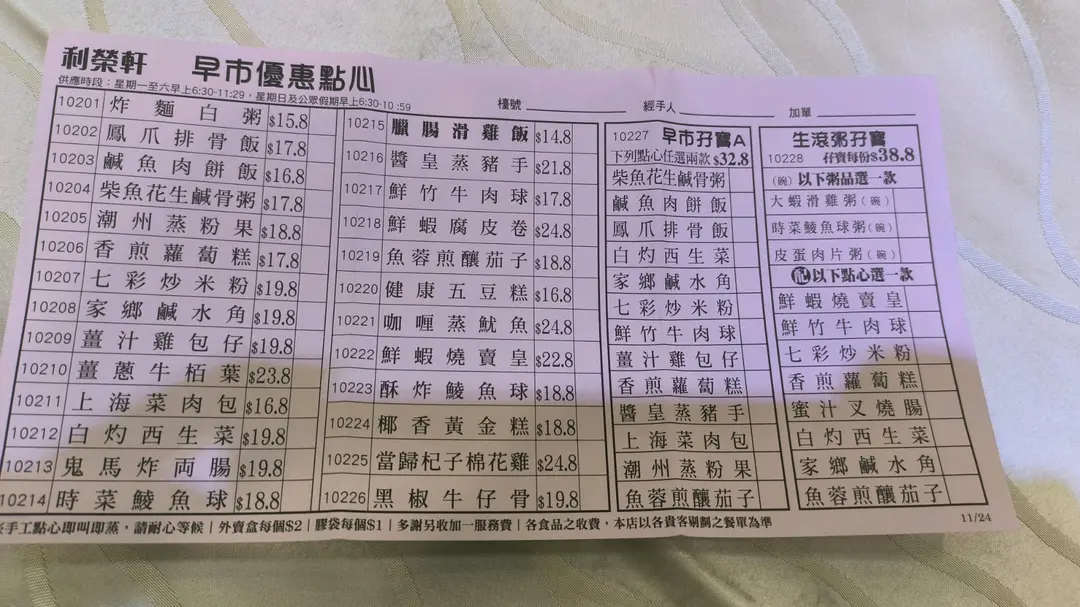 利榮軒 早市優惠點心
供應時段：星期一至六早上6:30-11:29，星期日及公眾假期早上6:30-10:59
檯號 經手人 加單
10201 炸麵白粥 $15.8
10202 鳳爪排骨飯 $17.8
10203 鹹魚肉餅飯 $16.8
10204 柴魚花生鹹骨粥 $17.8
10205 潮州蒸粉果 $18.8
10206 香煎蘿蔔糕 $17.8
10207 七彩炒米粉 $19.8
10208 家鄉鹹水角 $19.8
10209 薑汁雞包仔 $19.8
10210 薑蔥牛栢葉 $23.8
10211 上海菜肉包 $16.8
10212 白灼西生菜 $19.8
10213 鬼馬炸両腸 $19.8
10214 時菜鯪魚球 $18.8
10215 臘腸滑雞飯 $14.8
10216 醬皇蒸豬手 $21.8
10217 鮮竹牛肉球 $17.8
10218 鮮蝦腐皮卷 $24.8
10219 魚蓉煎釀茄子 $18.8
10220 健康五豆糕 $16.8
10221 咖喱蒸魷魚 $24.8
10222 鮮蝦燒賣皇 $22.8
10223 酥炸鯪魚球 $18.8
10224 椰香黃金糕 $18.8
10225 當歸杞子棉花雞 $24.8
10226 黑椒牛仔骨 $19.8
10227 早市孖寶A
下列點心任選兩款 $32.8
柴魚花生鹹骨粥
鹹魚肉餅飯
鳳爪排骨飯
白灼西生菜
家鄉鹹水角
七彩炒米粉
鮮竹牛肉球
薑汁雞包仔
香煎蘿蔔糕
醬皇蒸豬手
上海菜肉包
潮州蒸粉果
魚蓉煎釀茄子
生滾粥孖寶
10228 孖寶每份$38.8
（碗）以下粥品選一款
大蝦滑雞粥（碗）
時菜鯪魚球粥（碗）
皮蛋肉片粥（碗）
配以下點心選一款
鮮蝦燒賣皇
鮮竹牛肉球
七彩炒米粉
香煎蘿蔔糕
蜜汁叉燒腸
白灼西生菜
家鄉鹹水角
魚蓉煎釀茄子
手工點心即叫即蒸，請耐心等候 | 外賣盒每個$2 | 膠袋每個$1 | 多謝另收加一服務費 | 各食品之收費，本店以各貴客剔劃之餐單為準
11/24